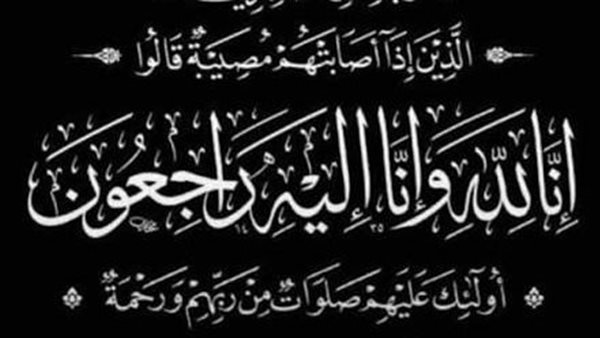 الَّذِيْنَ إِذَا أَصَابَتْهُمْ مُصِيْبَةٌ قَالُوا
إِنَّا لِلَّهِ وَإِنَّا إِلَيْهِ رَاجِعُونَ
١٤ ٣٥
أُولَٰئِكَ عَلَيْهِمْ صَلَوَاتٌ مِنْ رَبِّهِمْ وَرَحْمَةٌ